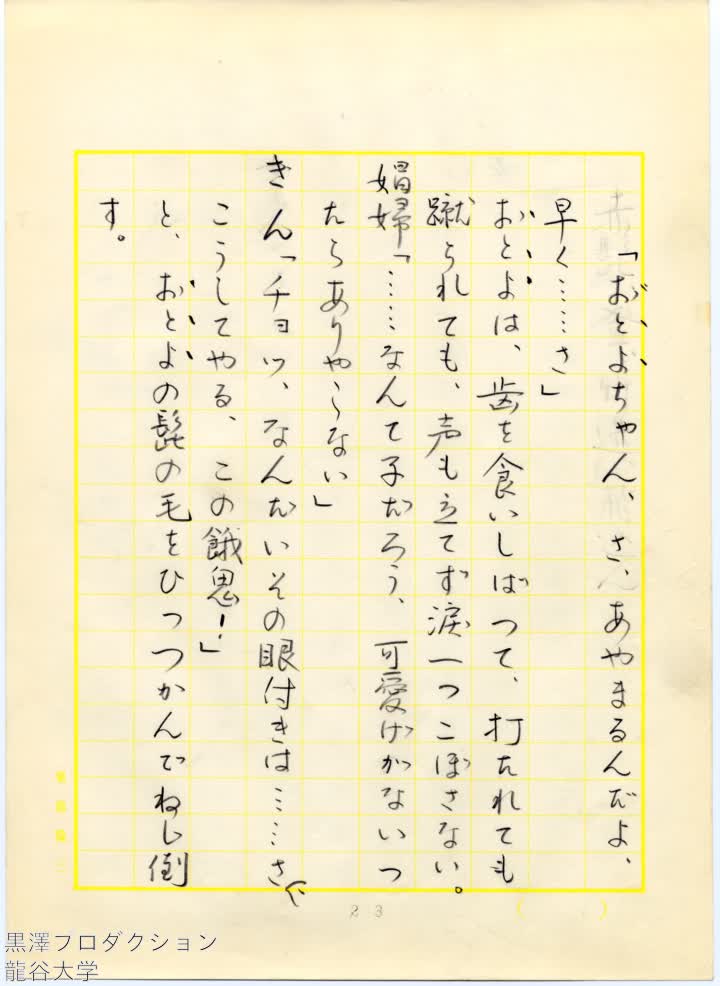 「おとよちゃん、さ、あやまるんだよ、
早く……さ」
おとよは、歯を食いしばつて、打たれても
蹴られても、声も立てず涙一つこぼさない。
娼婦「……なんて子だろう、可愛げがないつ
たらありやしない」
きん「チヨツ、なんだいその眼付きは……さ
こうしてやる、この餓鬼！」
と、おとよの髭の毛をひつつかんでねじ倒
す。
23
黒澤プロダクション
龍谷大学